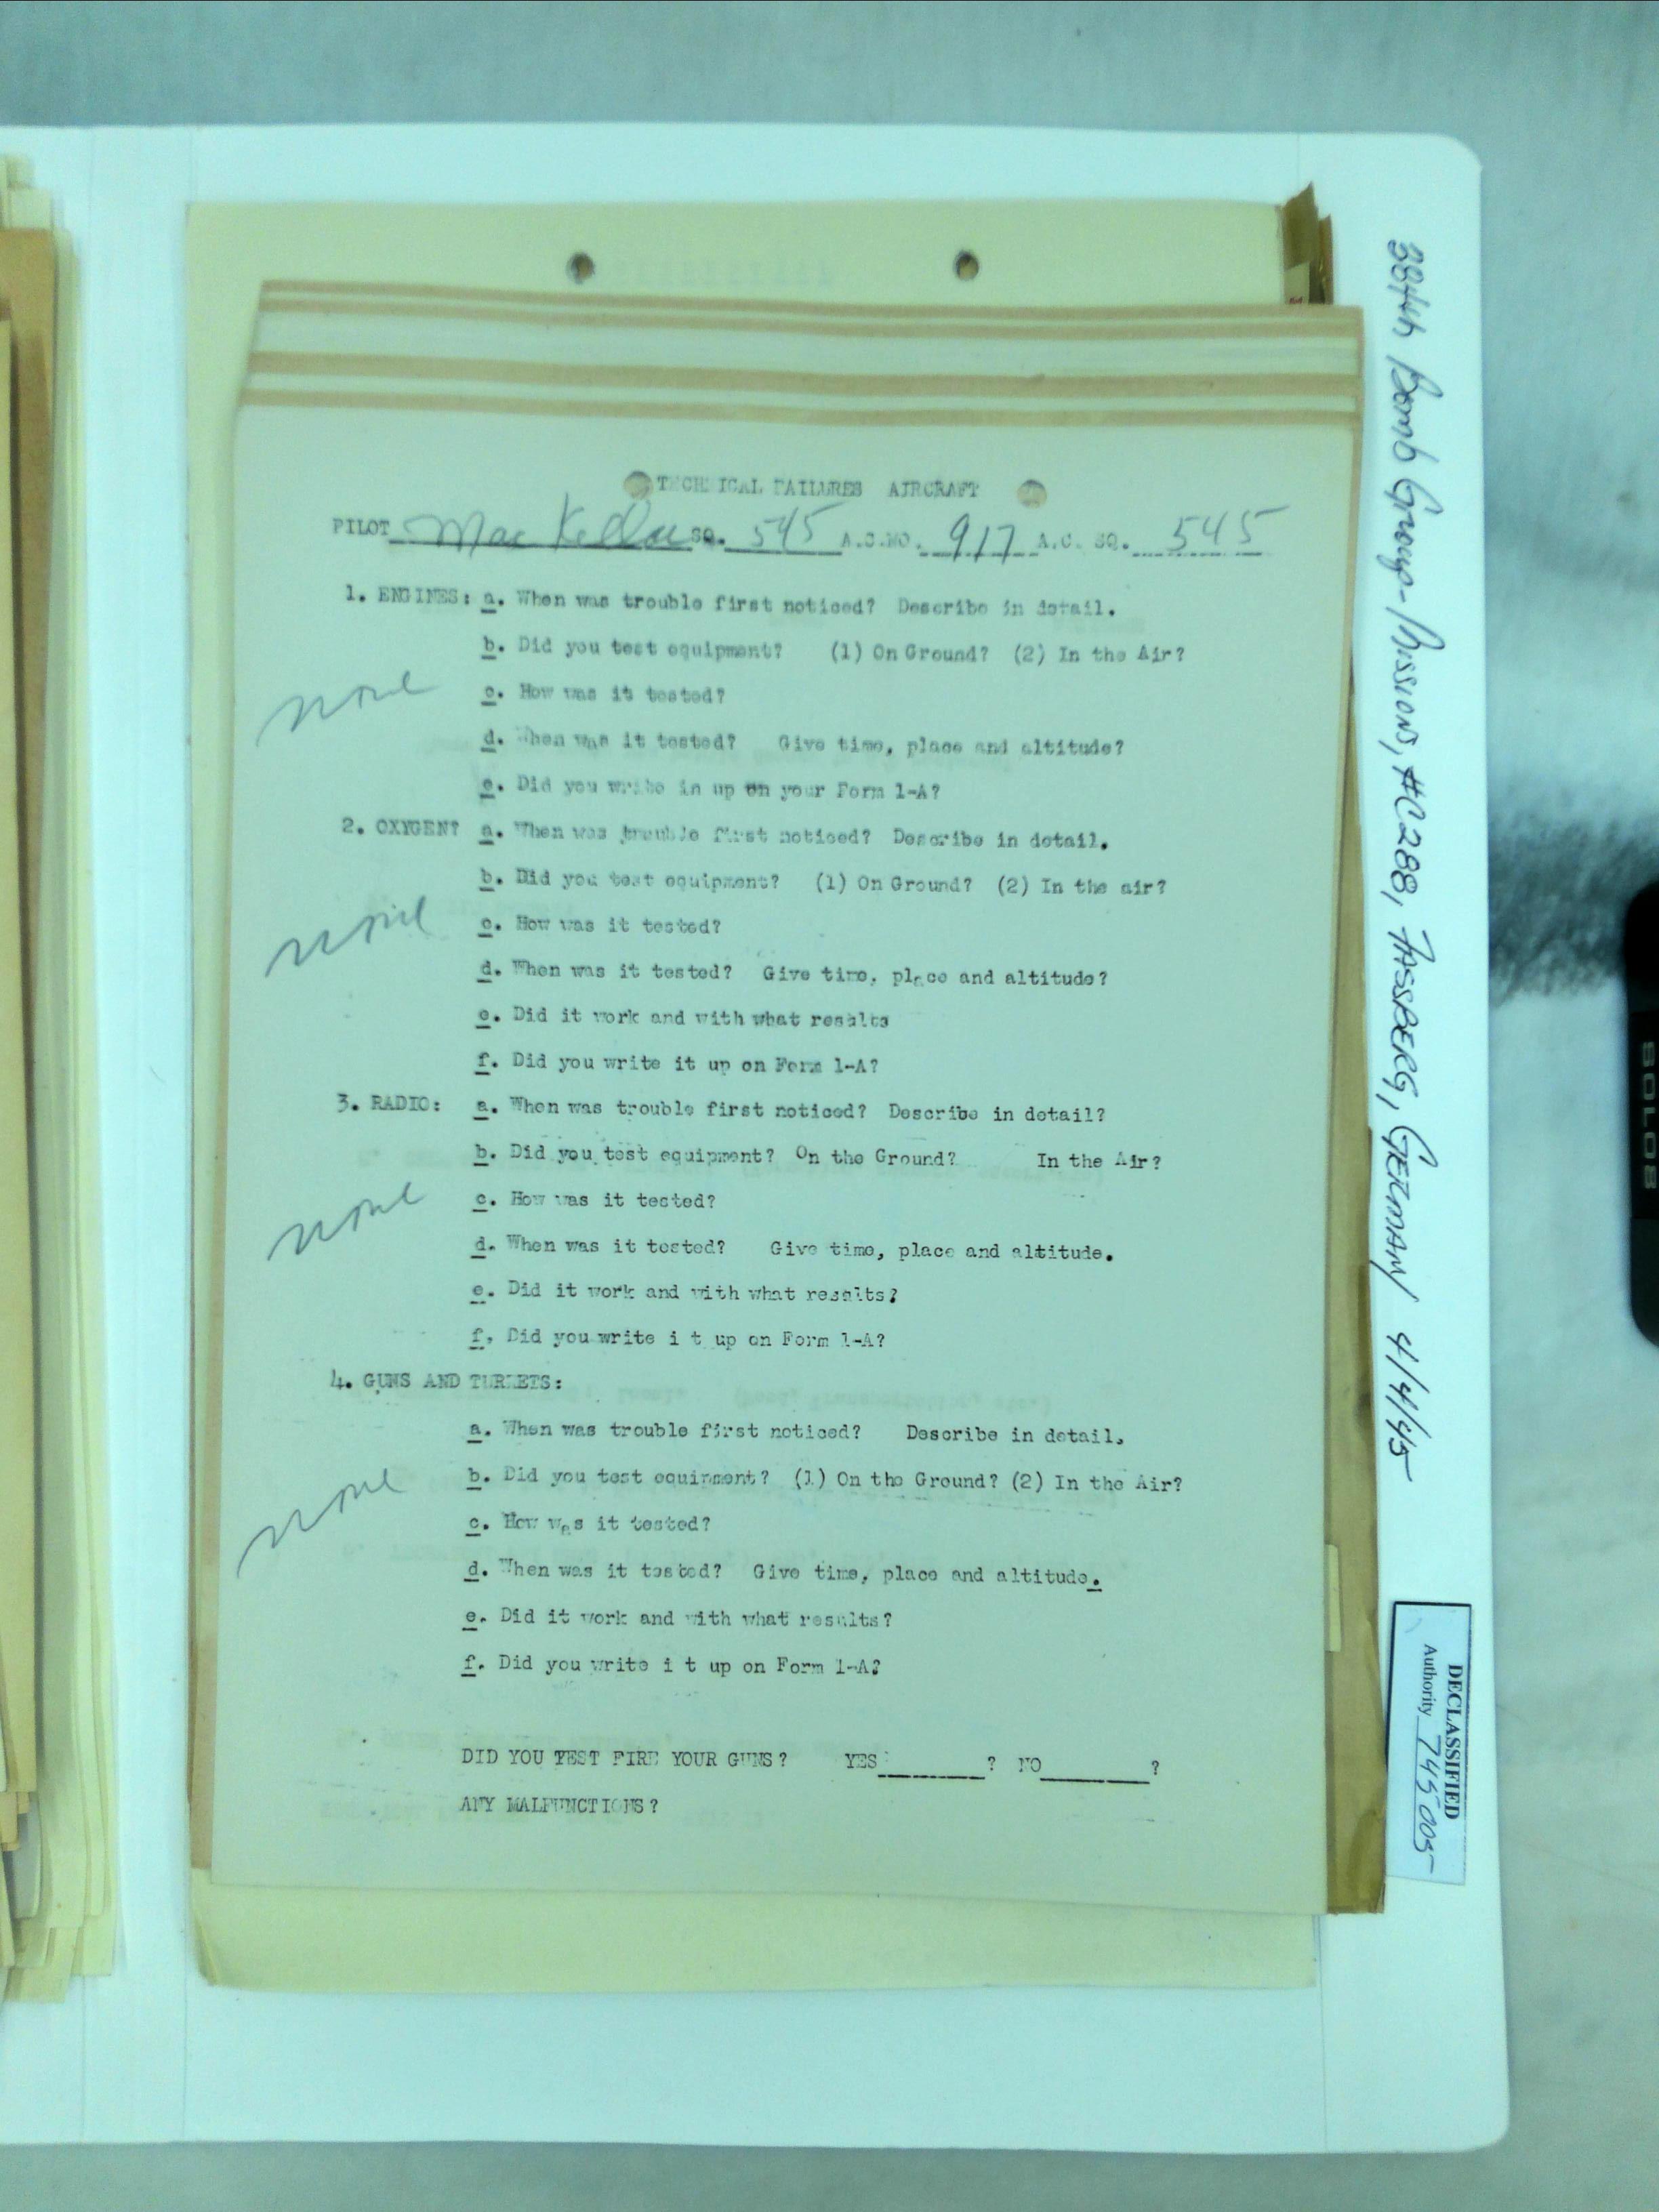 TECHNICAL FAILURES AIRCRAFT
PILOT Mac Kellar SQ. 545 A.C.NO. 917 A.C. SQ. 545
1. ENGINES: a. When was trouble first noticed? Describe in detail.
b. Did you test equipment? (1) On Ground? (2) In the Air?
none
c. How was it tested?
d. When was it tested? Give time, place and altitude?
e. Did you write in up on your Form 1-A?
2. OXYGEN? a. When was trouble first noticed? Describe in detail.
b. Did you test equipment? (1) On Ground? (2) In the air?
none
c. How was it tested?
d. When was it tested? Give time, place and altitude?
e. Did it work and with what results
f. Did you write it up on Form 1-A?
3. RADIO: a. When was trouble first noticed? Describe in detail?
b. Did you test equipment? On the Ground? In the Air?
none
c. How was it tested?
d. When was it tested? Give time, place and altitude.
e. Did it work and with what results?
f. Did you write i t up on Form 1-A?
4. GUNS AND TURRETS:
a. When was trouble first noticed? Describe in detail.
b. Did you test equipment? (1) On the Ground? (2) In the Air?
none
c. How was it tested?
d. When was it tested? Give time, place and altitude.
e. Did it work and with what results?
f. Did you write i t up on Form 1-A?
DID YOU TEST FIRE YOUR GUNS? YES ? NO ?
ANY MALFUNCTIONS?
384th Bomb Group - Missions, #C288, FASSBERG, GERMANY 4/4/45
DECLASSIFIED
Authority 745005
SOLO8